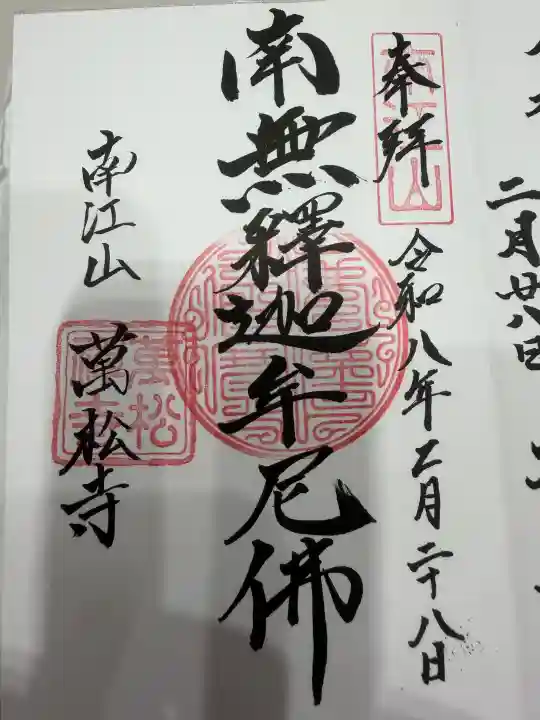 二月廿八日
奉拝
南江山
令和八年二月二十八日
南無釋迦牟尼佛
南江山
萬松寺
萬松